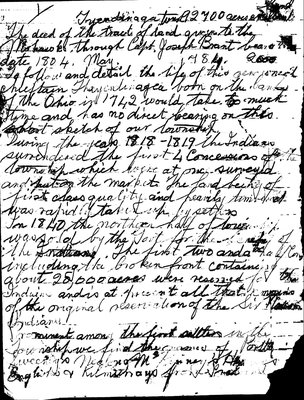 Tyendinaga 92700 acres
The deed of the tract of land given to the
Mohawks through Capt. Joseph Brant bears the
date 1804. May 1784.
To follow and detail the life of this
chieftain Thayendinagea born on the banks
of the Ohio in 1742 would take to much
time and has no direct bearing on this
short sketch of our township
During the years 1818-1819 the Indians
surrendered the first 4 Concessions of the
township which were at once surveyed
and put on the market. The land being of
first class quality and heavily timbered
was rapidly taken up by settlers
In 1840 the northern half of
was sold by the Govt. for the
the Indians. The first two and a half Con
including the broken front containing
about 28,000 acres were reserved for the
Indians and is at present all that remains
of the original reservation of the Six Nation
Indians.
Prominent among the first settlers in the
township we find the names of
Sweeneys
English &